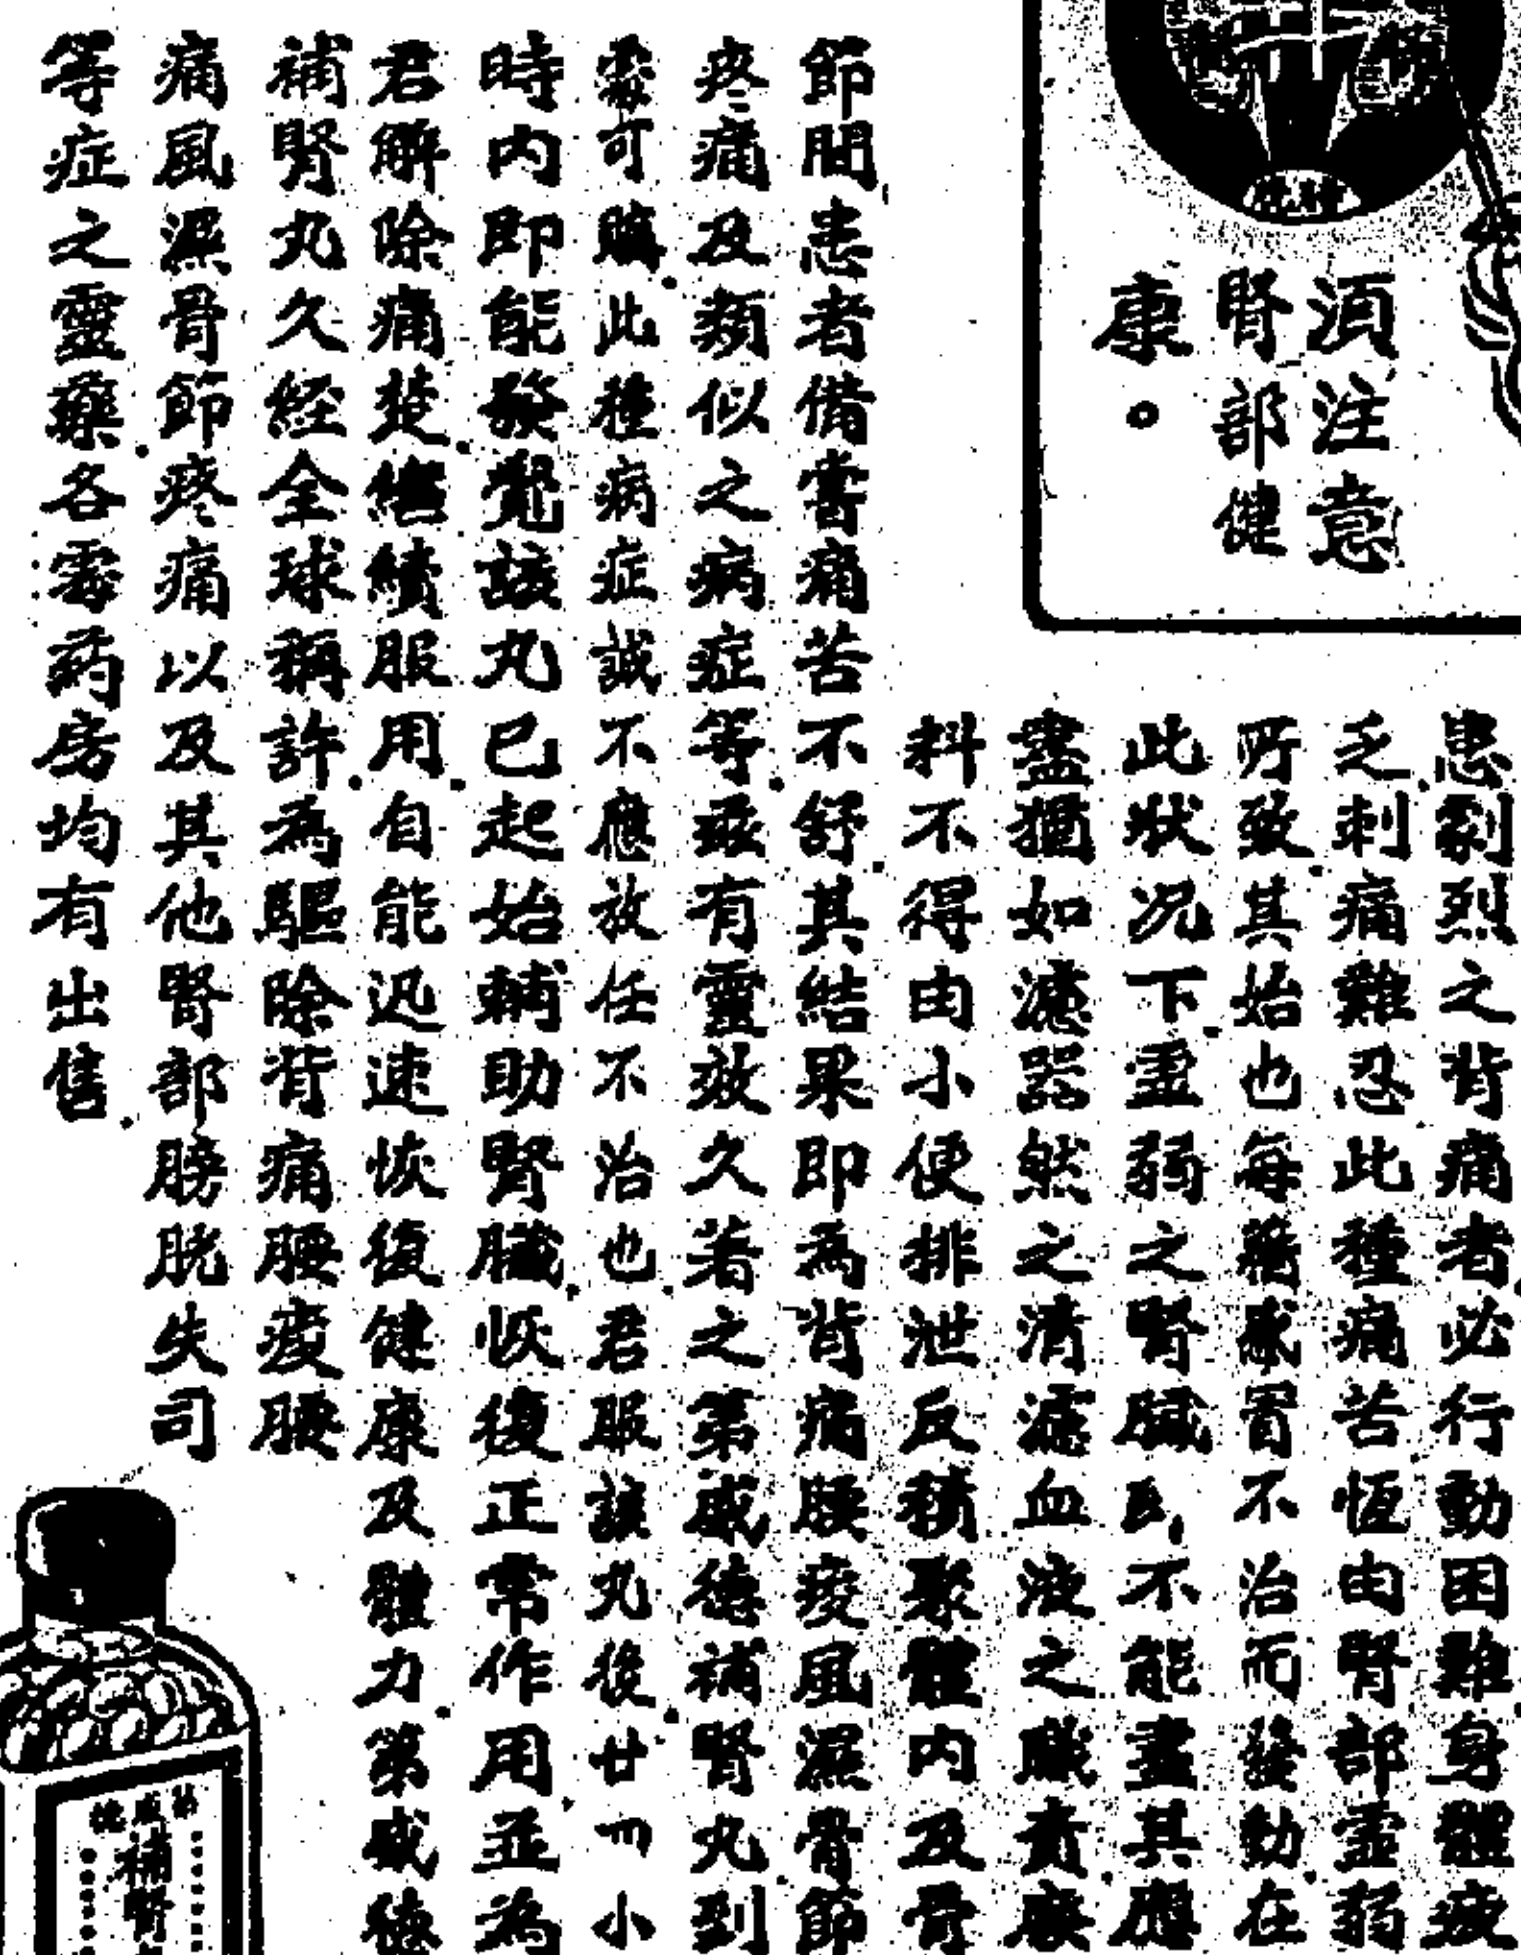 須注意
腎部健
康。
患劇烈之背痛者必行動困難身體疲
乏刺痛難忍此種痛苦恆由腎部虛弱
所致其始也每藉感冒不治而發動在
此狀况下虛弱之腎臟不能盡其應
盡猶如濾器然之清濾血液之職責廢
料不得由小便排泄反積聚體內及骨
節間患者備嘗痛苦不舒其結果即為背痛腰痠風濕骨節
疼痛及類似之病症等茲有靈效久著之第威德補腎丸到
處可購此種病症誠不應放任不治也君服該丸後廿四小
時內即能發覺該丸已起始輔助腎臟恢復正常作用並為
君解除痛楚繼續服用自能迅速恢復健康及體力第威德
補腎丸久經全球稱許為驅除背痛腰痠腰
痛風濕骨節疼痛以及其他腎部膀胱失司
等症之靈藥各處药房均有出售
第威德
補腎